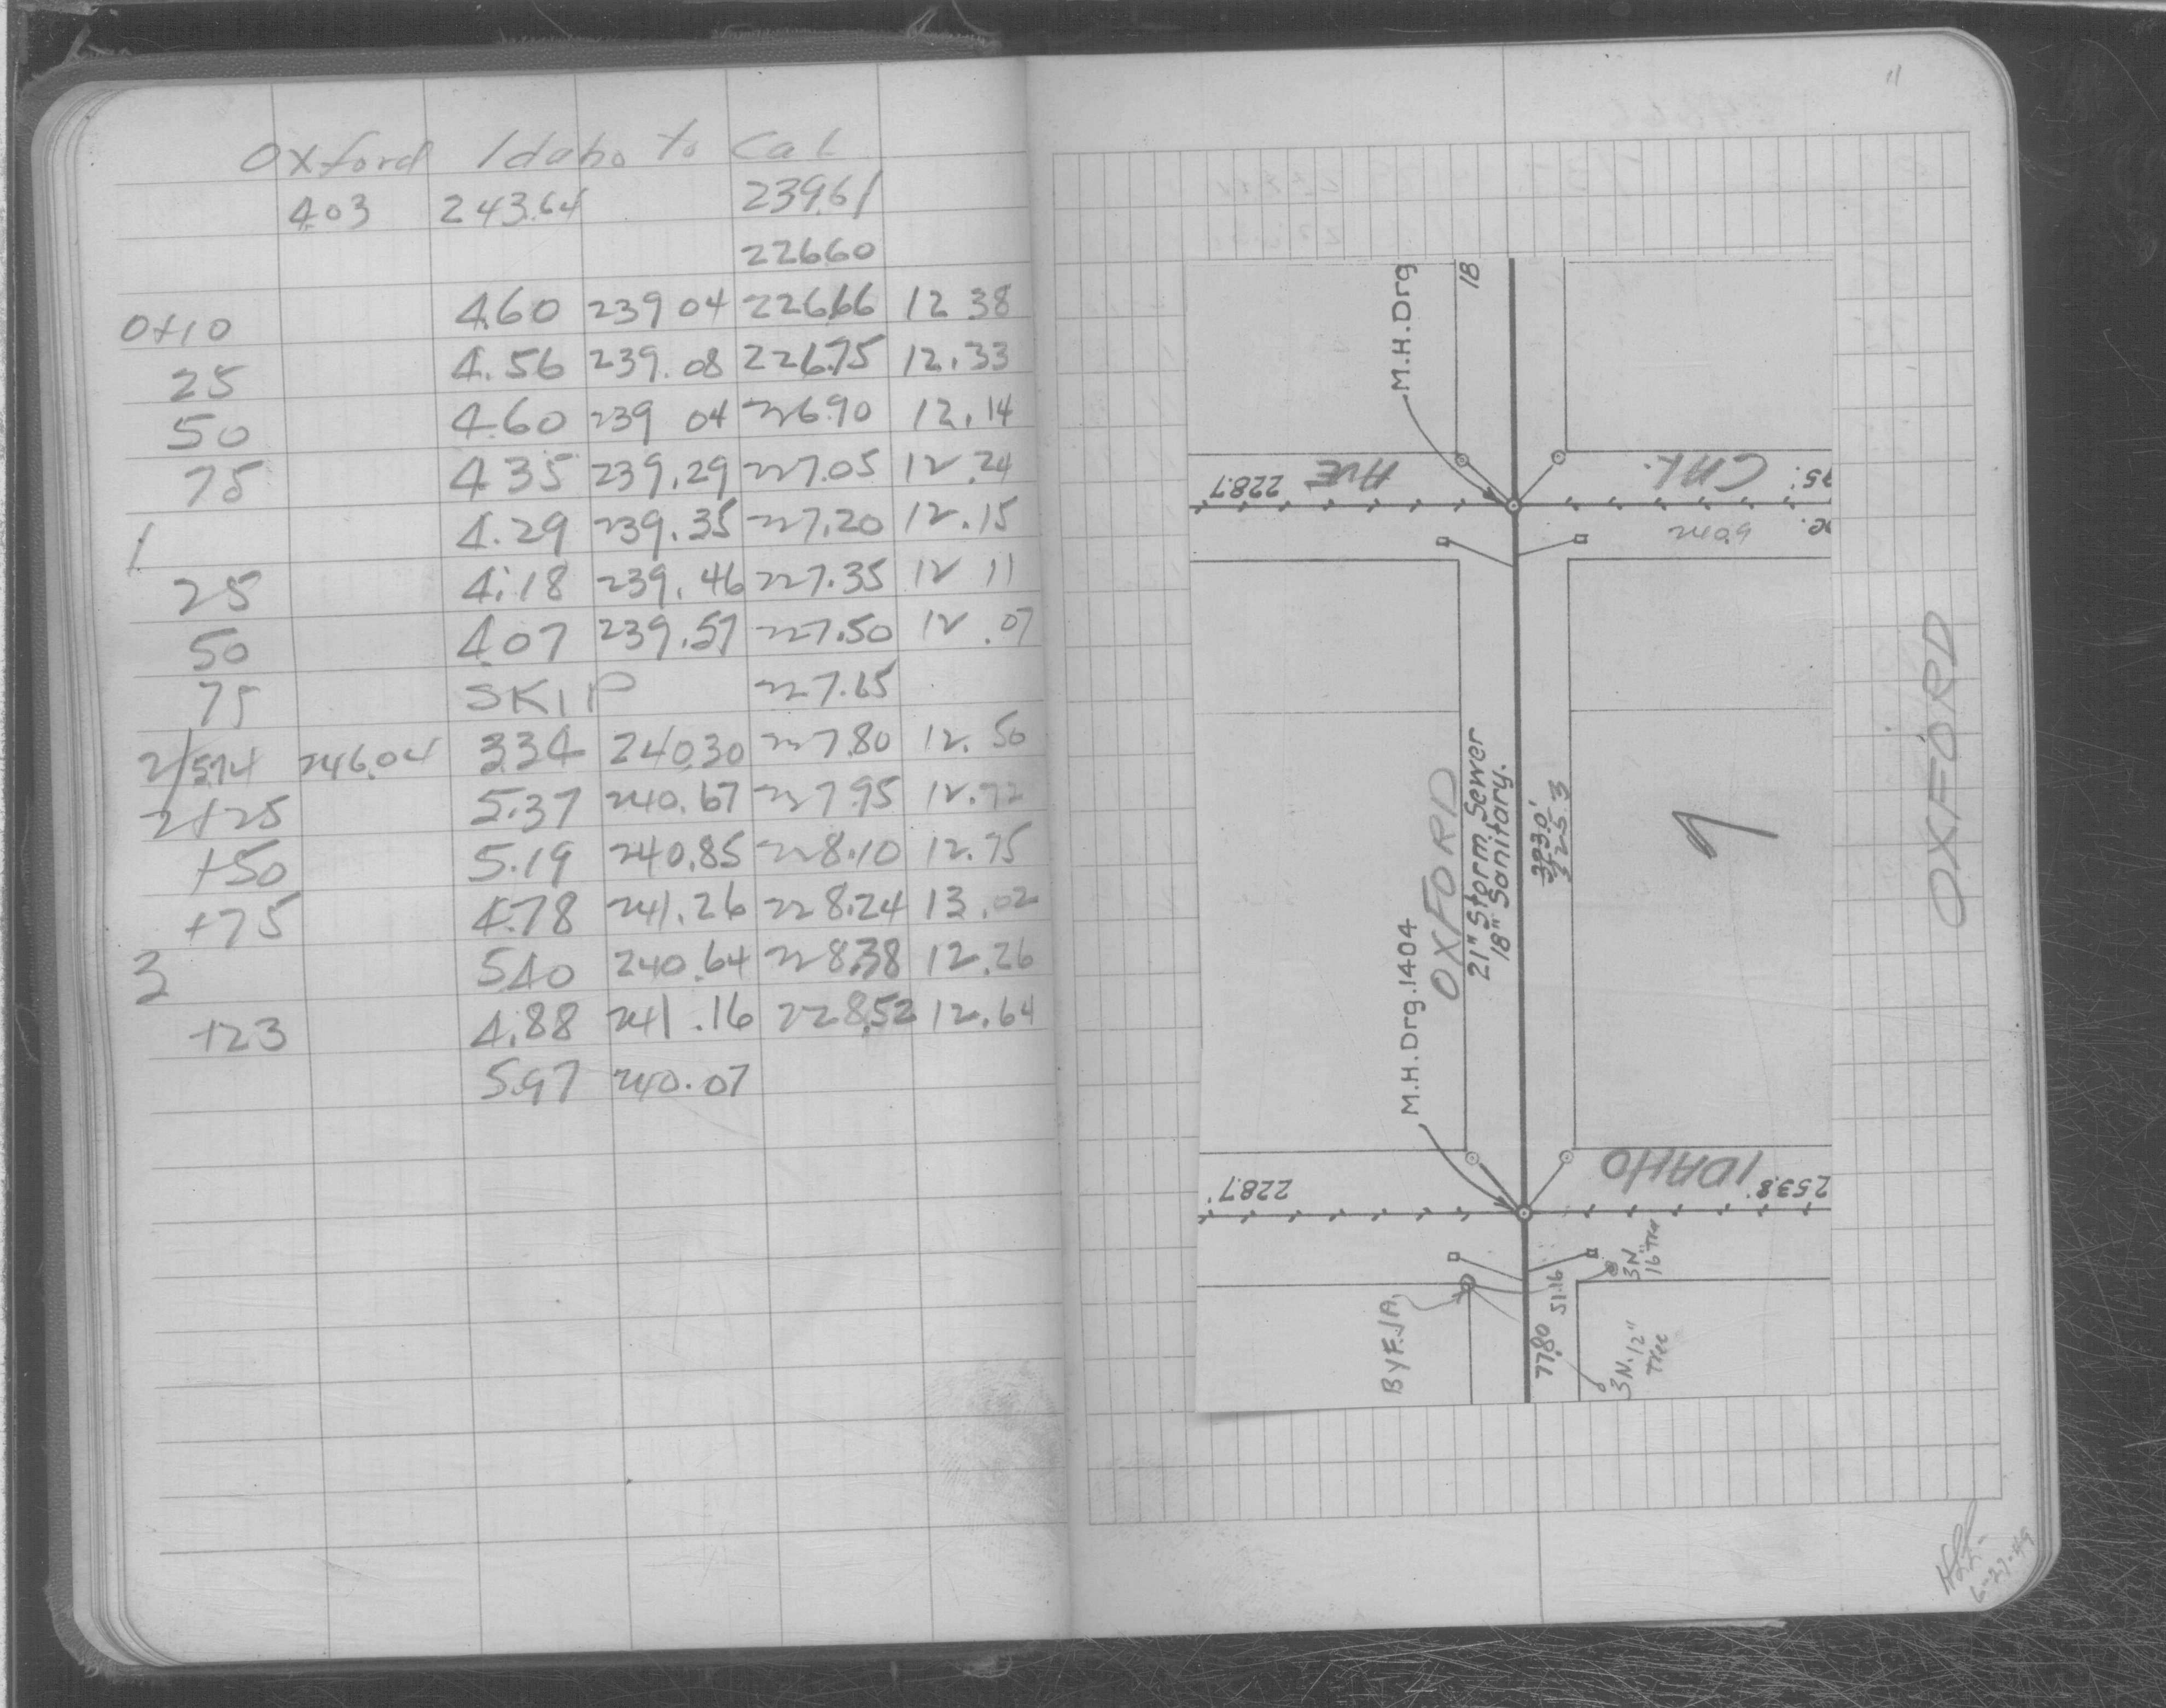 Oxford Idaho to Cal
4.03 243.64 239.61
226.60
0+10 4.60 239 04 226.66 12 38
25 4.56 239.08 226.75 12.33
50 4.60 239 04 226.90 12.14
75 4.35 239.29 227.05 12.24
1 4.29 239.35 227.20 12.15
25 4.18 239.46 227.35 12 11
50 4.07 239.57 227.50 12.07
75 SKIP 227.65
2/5.74 246.04 3.34 240.30 227.80 12.50
2+25 5.37 240.67 227.95 12.72
+50 5.19 240.85 228.10 12.75
+75 4.78 241.26 228.24 13.02
3 5.40 240.64 228.38 12.26
+23 4.88 241.16 228.52 12.64
5.97 240.07
11
M.H.Drg
18
228.7 AVE
CAL.
95.
240.9
M.H.Drg.1404
OXFORD
21" Storm Sewer
18" Sanitary.
393.0'
325.3
1
OXFORD
228.7'
IDAHO
253.8'
BYFJA
77.80
51.16
3N
16" Tree
3N. 12"
Tree
6-27-49